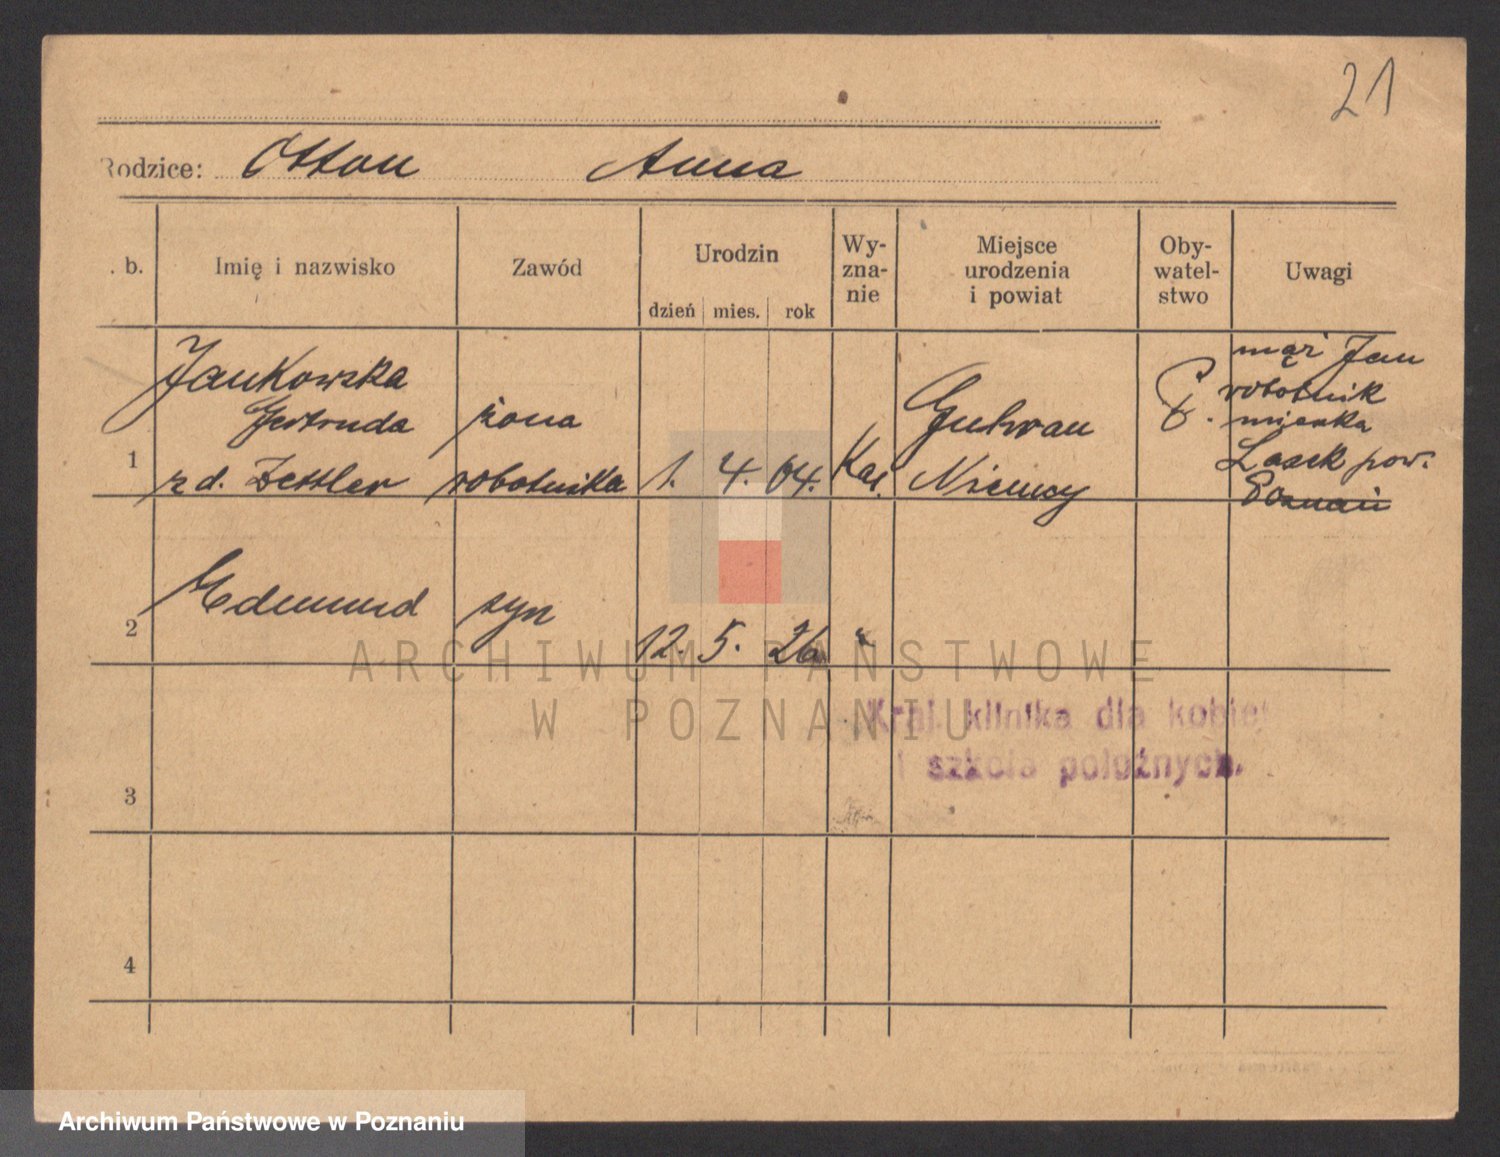 21
Rodzice: Otton Anna
. b.
Imię i nazwisko
Zawód
Urodzin
dzień mies. rok
Wy-
zna-
nie
Miejsce
urodzenia
i powiat
Oby-
watel-
stwo
Uwagi
1
Jankowska
Gertruda
rd. Zettler
żona
robotnika
1. 4. 04.
Kat.
Guhrau
Niemcy
P.
mąż Jan
robotnik
mieszka
Lasek pow.
Poznań
2
Edmund
syn
12. 5. 26
"
Kraj. klinika dla kobiet
i szkoła położnych.
3
4
ARCHIWUM PAŃSTWOWE
W POZNANIU
Archiwum Państwowe w Poznaniu